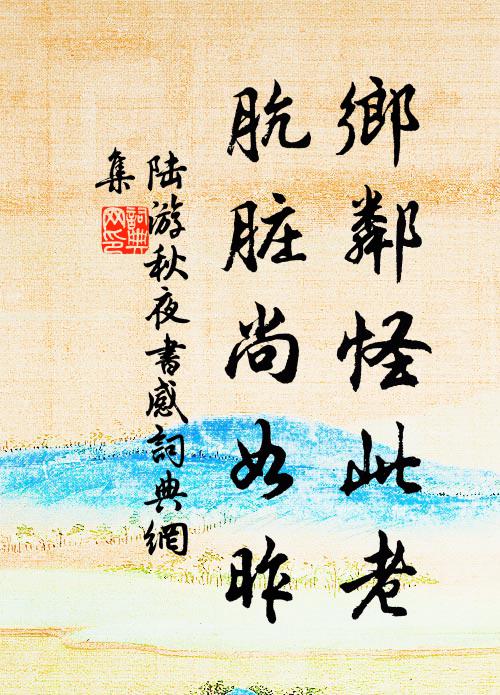 鄉鄰怪此老
肮脏尚如昨
陆游秋夜書感詞典網
集
詞典
网印